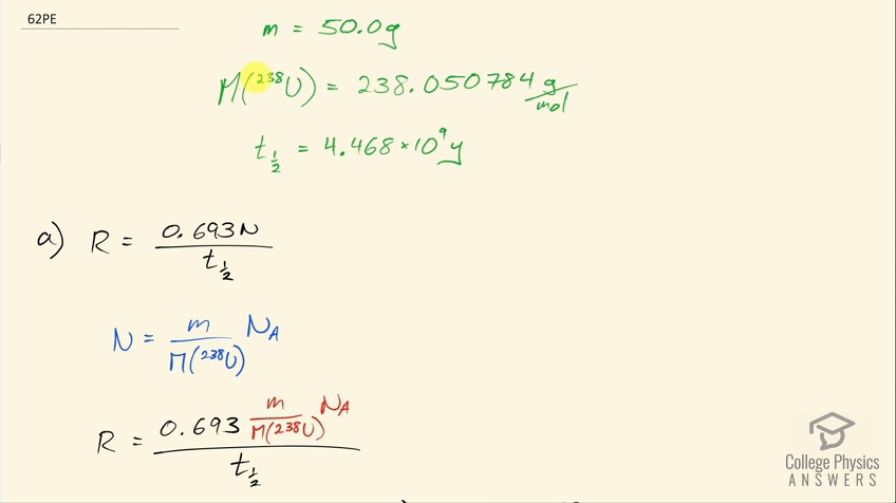 62PE
m = 50.0g
M(²³⁸U) = 238.050784 g/mol
t½ = 4.468×10⁹y
a) R = 0.693N / t½
N = m / M(²³⁸U) N_A
R = 0.693 m / M(²³⁸U) N_A / t½
College Physics
ANSWERS